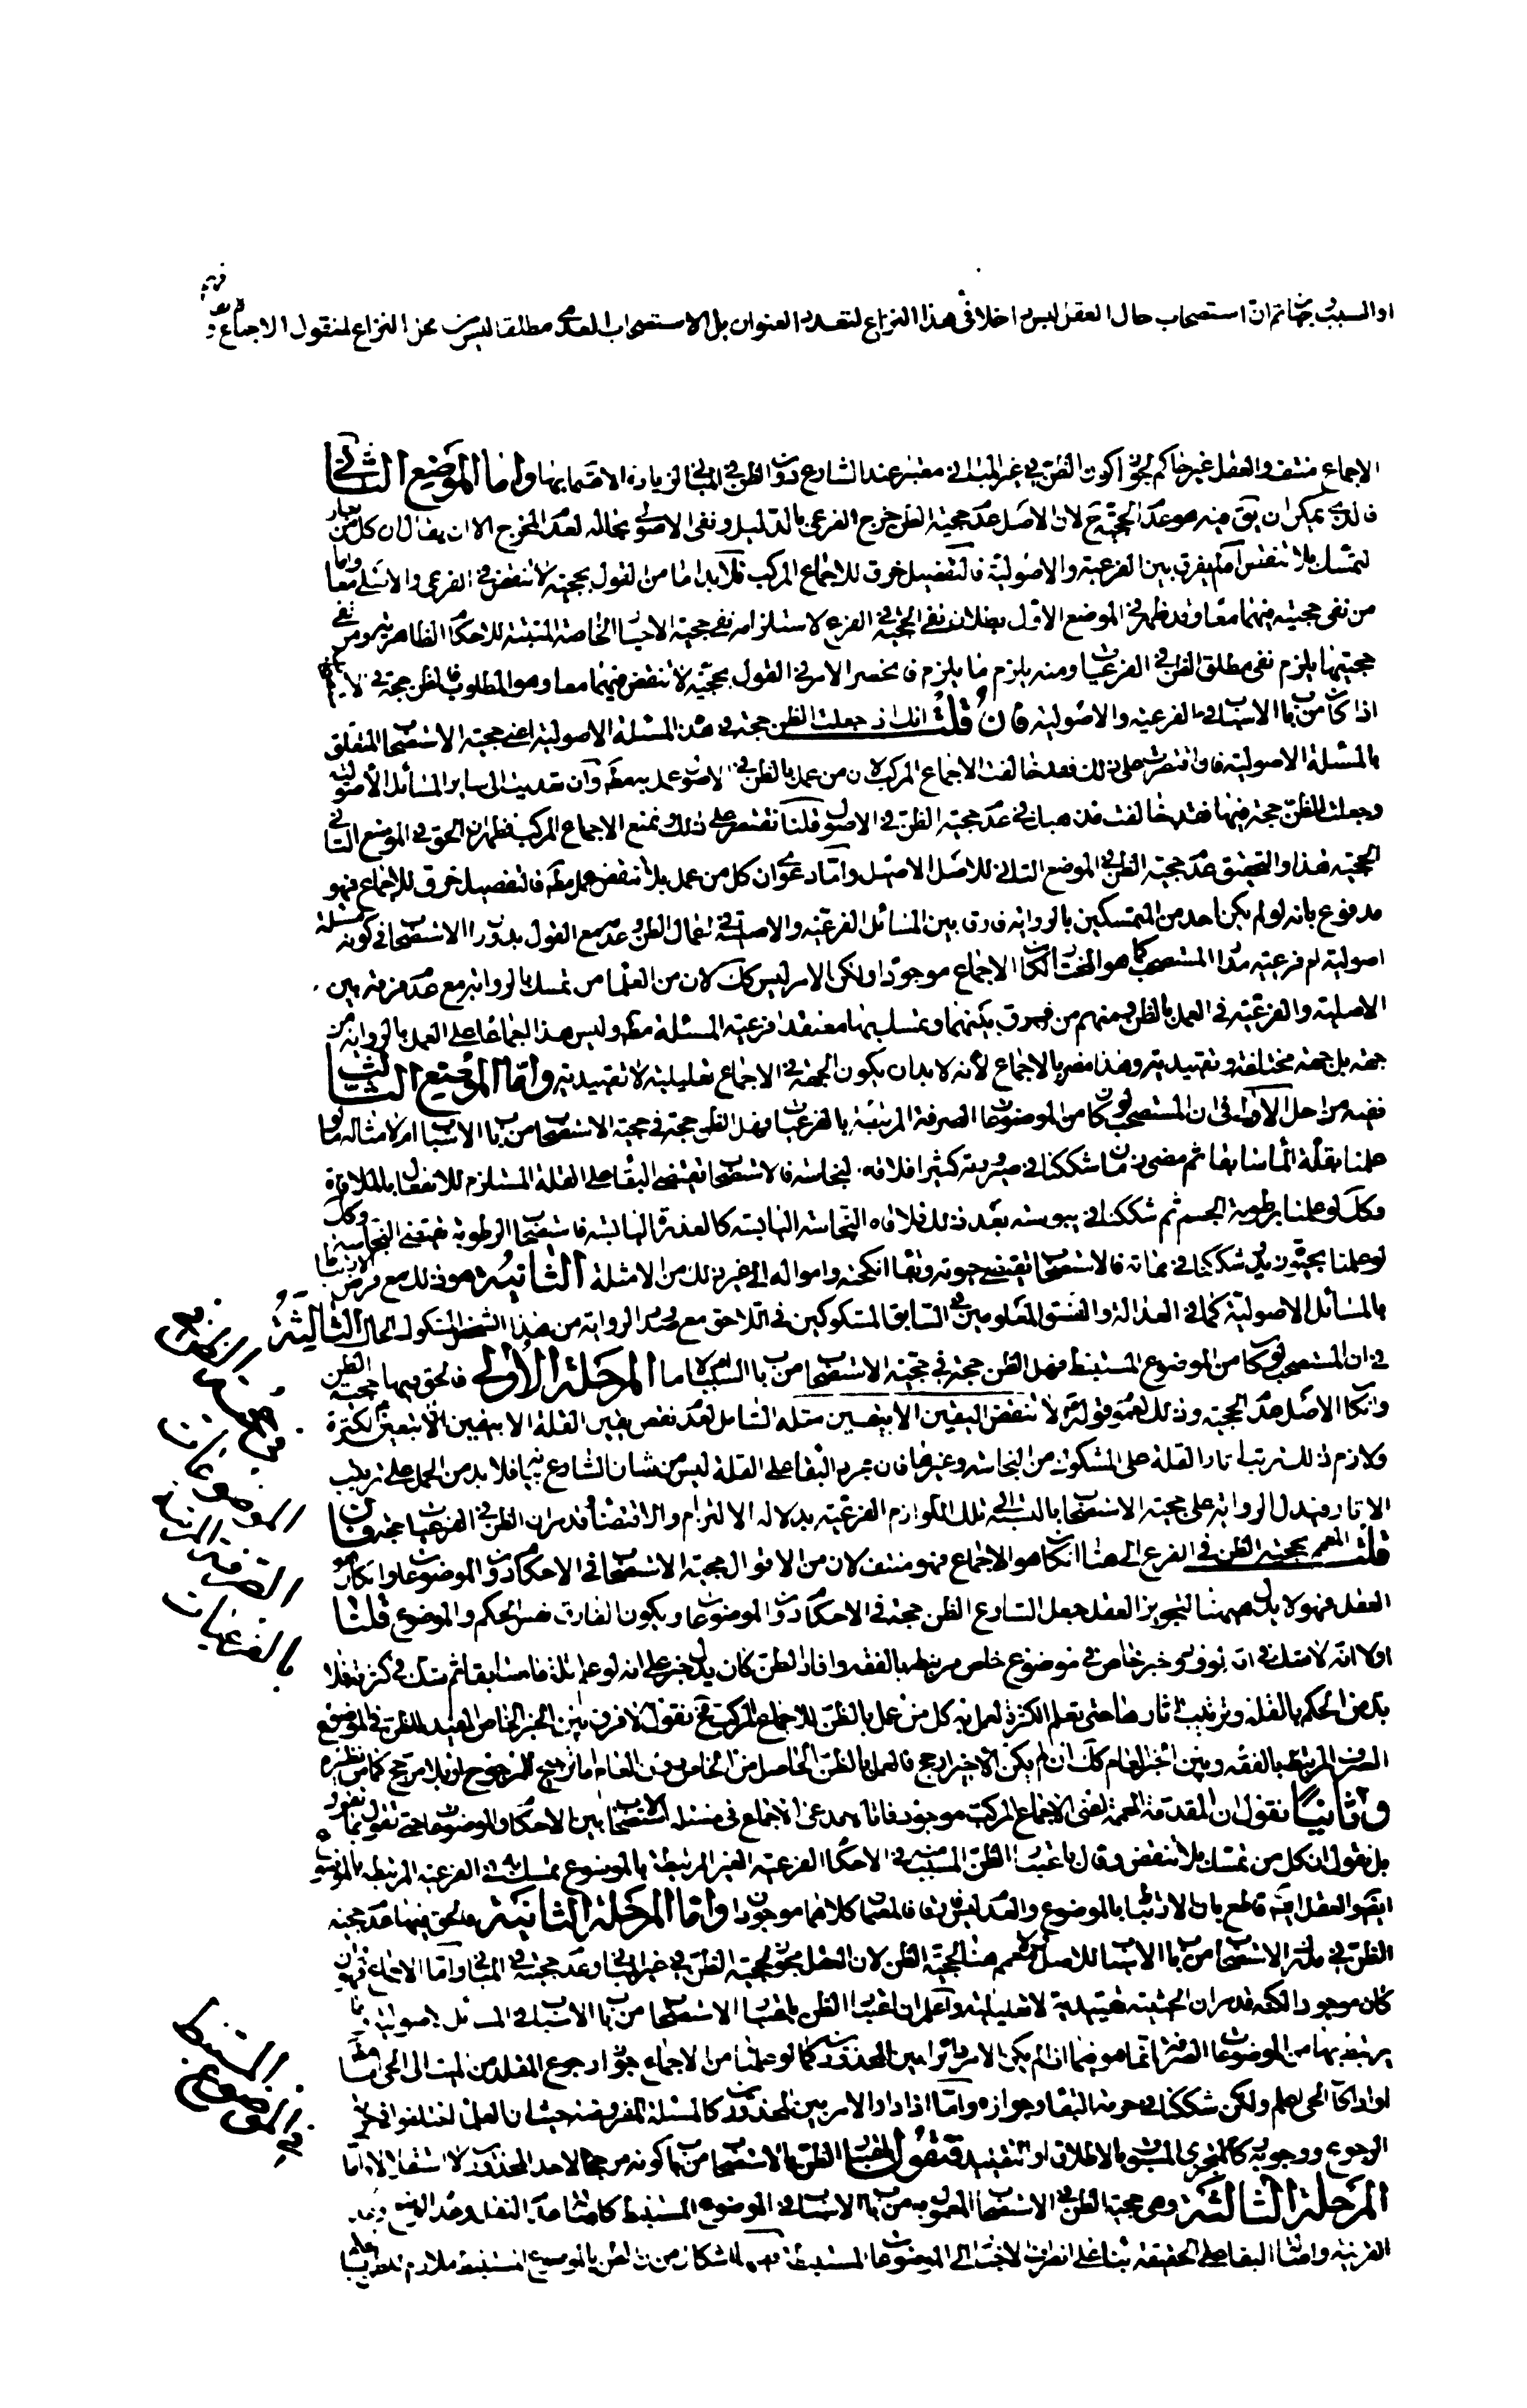 او المسبب ثم ان استصحاب حال العقل ليس داخلا في هذا النزاع لتعدد العنوان بل الاستصحاب العدمي مطلقا ليس من محل النزاع لمنقول الاجماع
الاجماع منتف والعقل غير حاكم لجواز كون الظن في غير المباني معتبر عند الشارع دون الظن في المباني لزيادة الاهتمام بها واما الموضع الثاني
فالذي يمكن ان يق فيه هو عدم الحجية لان الاصل عدم حجية الظن خرج الفرعي بالدليل وبقى الاصولي بحاله لعدم المخرج الا ان يقال ان كل من
تمسك بلا تنقض لم يفرق بين الفرعية والاصولية فالتفصيل خرق للاجماع المركب فلا بد اما من القول بحجية لا تنقض في الفرعي والاصلي معا واما
من نفى حجيته فيهما معا وقد ظهر في الموضع الاول بطلان نفي الحجية في الفرع لاستلزامه نفي حجية الاخبار الخاصة المثبتة للاحكام الظاهرية ومن نفي
حجيتها يلزم نفي مطلق الظن في الفرعيات ومنه يلزم ما يلزم فانحصر الامر في القول بحجية لا تنقض فيهما معا وهو المطلوب فالظن حجة في
اذا كان من باب الاسباب في الفرعية والاصولية فان قلت انك اذ جعلت الظن حجة في هذه المسئلة الاصولية اعني حجية الاستصحاب المتعلق
بالمسئلة الاصولية فان اقتصرت على ذلك فقد خالفت الاجماع المركب لان من عمل بالظن في الاصول عمل به مطلقا وان تعديت الى ساير المسائل الاصولية
وجعلت الظن حجة فيها فقد خالفت مذهبك في عدم حجية الظن في الاصول قلنا نقتصر على ذلك ونمنع الاجماع المركب فظهر ان الحق في الموضع الثاني
الحجية هذا والتحقيق عدم حجية الظن في الموضع الثاني للاصل الاصيل واما دعوى ان كل من عمل بلا تنقض عمل مطلقا فالتفصيل خرق للاجماع فهو
مدفوع بانه لو لم يكن احد من المتمسكين بالرواية فارق بين المسائل الفرعية والاصلية في اعمال الظن وعدمه مع القول بدوران الاستصحاب في كونه مسئلة
اصولية ام فرعية مدار المستصحب كما هو المختار لكان الاجماع موجودا ولكن الامر ليس كك لان من العلماء من تمسك بالرواية مع عدم فرقه بين
الاصلية والفرعية في العمل بالظن ومنهم من فرق بينهما وتمسك بها معتقدا فرعية المسئلة مطلقا وليس هذا اجماعا على العمل بالرواية من
جهة بل جهة مختلفة وتقييدية وهذا مضر بالاجماع لانه لا بد ان يكون الجهة في الاجماع تعليلية لا تقييدية واما الموضع الثالث
ففيه مراحل الاولى في ان المستصحب لو كان من الموضوعات الصرفة المرتبطة بالفرعيات فهل الظن حجة في حجية الاستصحاب من باب الاسباب ام لا مثاله ما لو
علمنا بقلة الماء سابقا ثم مضى زمان شككنا في صيرورته كثيرا فلاقه لنجاسة فالاستصحاب يقتضي البقاء على القلة المستلزم للانفعال بالملاقاة
وكك لو علمنا برطوبة الجسم ثم شككنا في يبوسته بعد ذلك فلاقاه النجاسة اليابسة كالعذرة اليابسة فاستصحاب الرطوبة يقتضي النجاسة وكك
لو علمنا بحيوة زيد ثم شككنا في مماته فالاستصحاب يقتضي حيوته وبقاء انكحته وامواله الى غير ذلك من الامثلة الثانية هو ذلك مع فرض الارتباط
بالمسائل الاصولية كما في العدالة والفسق المعلومين في السابق المشكوكين في اللاحق مع صدور الرواية من هذا الشخص المشكوك الحال الثالثة
في ان المستصحب لو كان من الموضوع المستنبط فهل الظن حجة في حجية الاستصحاب من باب السبب ام لا اما المرحلة الاولى فالحق فيها حجية الظن
وان كان الاصل عدم الحجية وذلك لعموم قوله لا تنقض اليقين الا بيقين مثله الشامل لعدم نقض يقين القلة الا بيقين الكثرة
ولازم ذلك ترتب اثار القلة على المشكوك من النجاسة وغيرها فان مجرد البقاء على القلة ليس من شان الشارع بيانه فلا بد من الحمل على ترتيب
الاثار فيدل الرواية على حجية الاستصحاب بالنسبة الى تلك اللوازم الفرعية بدلالة الالتزام والاقتضاء وقد مر ان الظن في الفرعيات حجة فان
قلت المعمم بحجية الظن في الفرع الى هنا ان كان هو الاجماع فهو منتف لان من الاقوال حجية الاستصحاب في الاحكام دون الموضوعات وان كان هو
العقل فهو لا يدل هيهنا لتجويز العقل جعل الشارع الظن حجة في الاحكام دون الموضوعات ويكون الفارق نفس الحكم والموضوع قلنا
اولا انه لا شك في ان لو فرض خبر خاص في موضوع خاص مرتبط بالفقه وافاد الظن كان يدل خبر على انه لو علم بقلة ماء سابقا ثم شك في كثرته فلا
بد من الحكم بالقلة وترتيب اثارها حتى تعلم الكثرة لعمل به كل من عمل بالظن للاجماع المركب فح نقول لا فرق بين الخبر الخاص المفيد للظن في الموضوع
الصرف المرتبط بالفقه وبين الخبر العام كك ان لم يكن الاخير ارجح فالعمل بالظن الحاصل من الخاص دون العام اما ترجيح للمرجوح او بلا مرجح كما مر نظيره
وثانيا نقول ان المقدمة المعممة اعني الاجماع المركب موجود فانا لا ندعي الاجماع في مسئلة الاستصحاب بين الاحكام والموضوعات حتى تقول بما تقول
بل نقول ان كل من تمسك بلا تنقض وقال باعتبار الظن المسبب منه في الاحكام الفرعية الغير المرتبطة بالموضوع تمسك به في الفرعية المرتبطة بالموضوع
ايضا والعقل ايضا قاطع بان الارتباط بالموضوع والعدم ليس فارقا فالمعممان كلاهما موجودان واما المرحلة الثانية فالحق فيها عدم حجية
الظن في مسئلة الاستصحاب من باب الاسباب للاصل ولا معمم هنا لحجية الظن لان العقل يجوز حجية الظن في غير المباني وعدم حجيته في المباني واما الاجماع فهو وان
كان موجودا لكنه قد مر ان الحيثية تقييدية لا تعليلية واعلم ان اعتبار الظن باعتبار الاستصحاب من باب الاسباب في المسائل الاصولية وما
يرتبط بها من الموضوعات الصرفة انما هو فيما ان لم يكن الامر دائرا بين المحذورين كما لو علمنا من الاجماع جواز رجوع المقلد من الميت الى الحي مطلقا
او اذا كان الحي اعلم ولكن شككنا في حرمة البقاء وجوازه واما اذا دار الامر بين المحذورين كالمسئلة المفروضة حيث ان العلماء اختلفوا في حرمة
الرجوع ووجوبه كالتجزي المسبوق بالاطلاق او التقييد فنقول اعتبار الظن بالاستصحاب من باب كونه مرجحا لاحد المحذورين لا اشكال فيه واما
المرحلة الثالثة وهي حجية الظن في الاستصحاب المعمول به من باب الاسباب في الموضوع المستنبط كاصالة عدم النقل وعدم
القرينة واصالة البقاء على الحقيقة بناء على انصراف الاخبار الى الموضوعات المستنبطة
من الموضوعات
الصرفة المرتبطة
بالفرعيات
في الموضوع
المستنبط